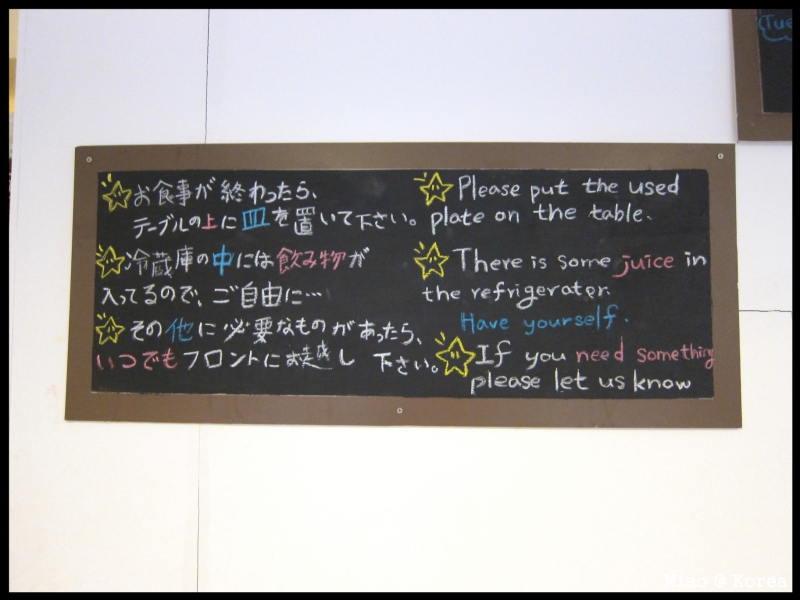 お食事が終わったら、
テーブルの上に皿を置いて下さい。
冷蔵庫の中には飲み物が
入ってるので、ご自由に…
その他に必要なものがあったら、
いつでもフロントにお越し下さい。
Please put the used
plate on the table.
There is some juice in
the refrigerater.
Have yourself.
If you need something
please let us know
(Tue
@ Korea